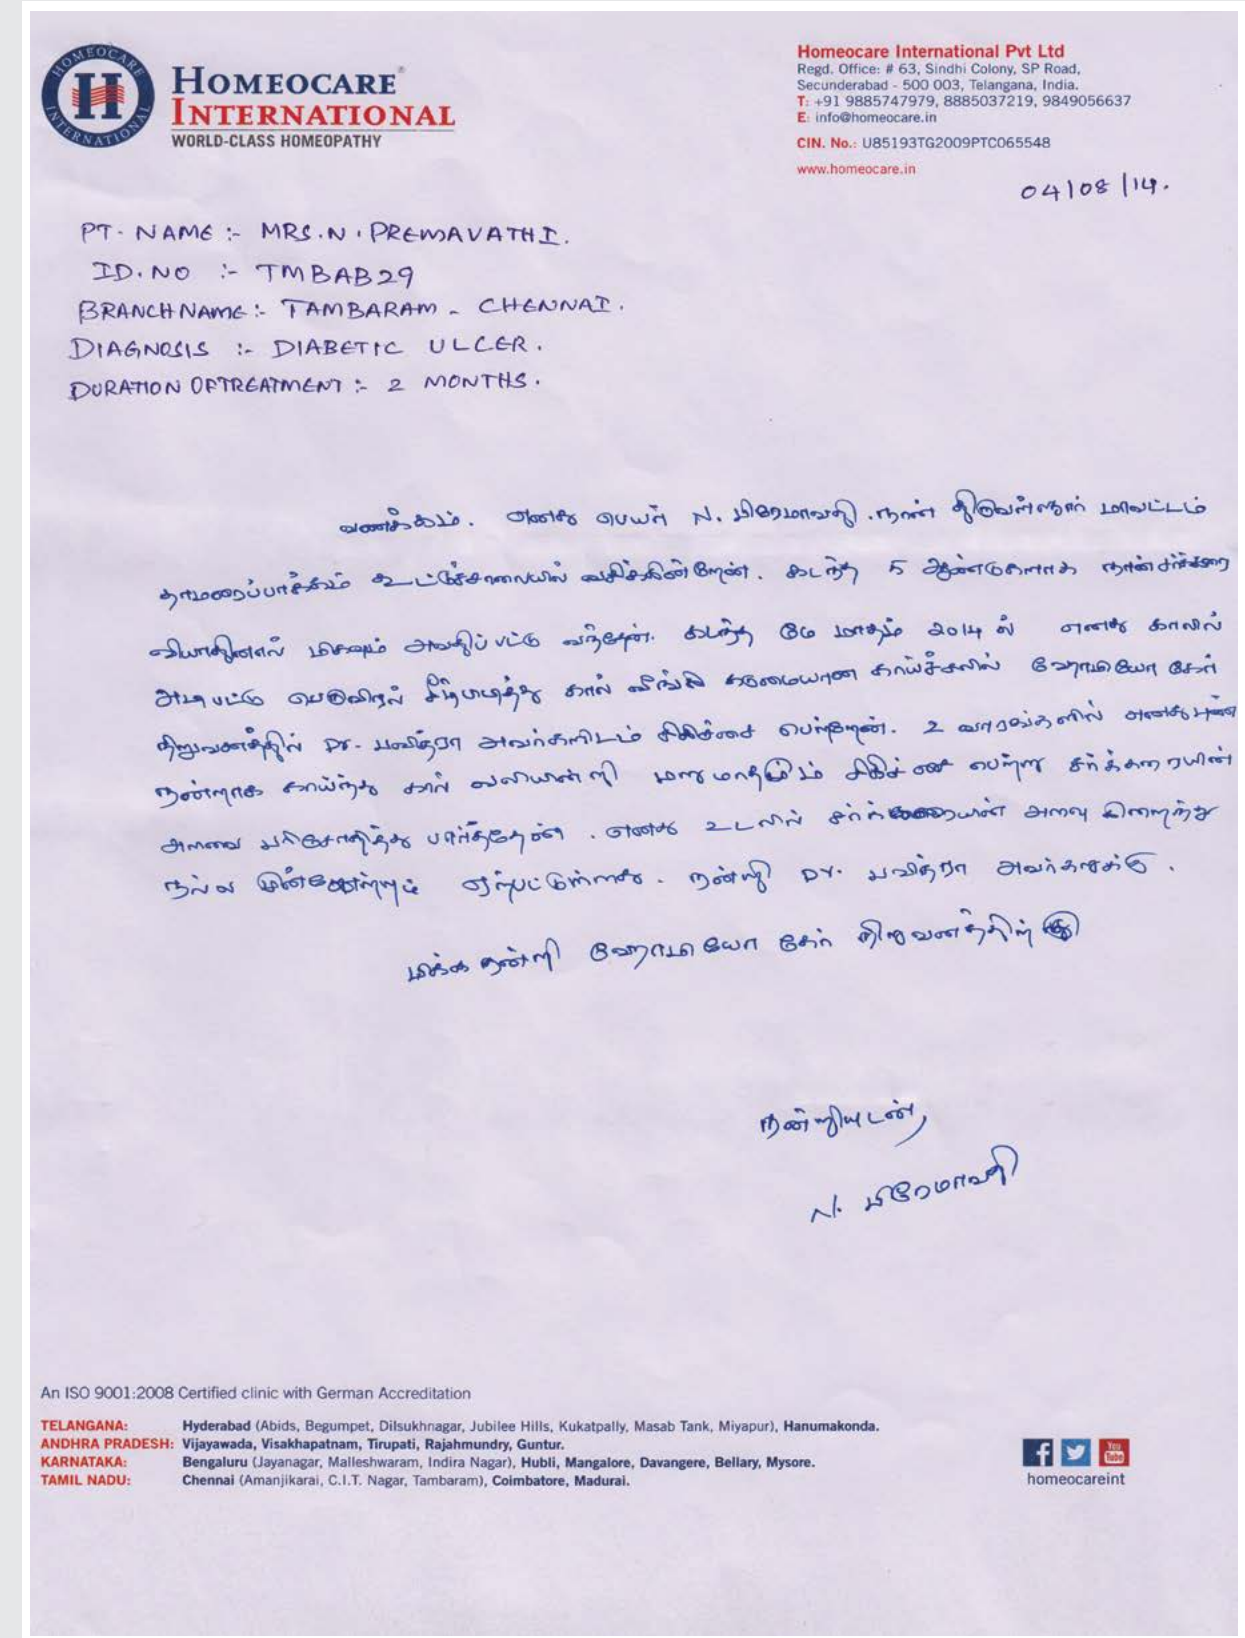 HOMEOCARE
INTERNATIONAL
HOMEOCARE®
INTERNATIONAL
WORLD-CLASS HOMEOPATHY
Homeocare International Pvt Ltd
Regd. Office: # 63, Sindhi Colony, SP Road,
Secunderabad - 500 003, Telangana, India.
T: +91 9885747979, 8885037219, 9849056637
E: info@homeocare.in
CIN. No.: U85193TG2009PTC065548
www.homeocare.in
04/08/14.
PT. NAME :- MRS. N. PREMAVATHI.
ID. NO :- TMBAB29
BRANCH NAME :- TAMBARAM - CHENNAI.
DIAGNOSIS :- DIABETIC ULCER.
DURATION OF TREATMENT :- 2 MONTHS.
வணக்கம். எனது பெயர் N. பிரேமாவதி. நான் திருவள்ளூர் மாவட்டம்
தாமரைப்பாக்கம் கூட்டுச்சாலையில் வசிக்கின்றேன். கடந்த 5 ஆண்டுகளாக நான் சர்க்கரை
வியாதினால் மிகவும் அவதிப்பட்டு வந்தேன். கடந்த மே மாதம் 2014 ல் எனது காலில்
அடிபட்டு பெருவிரல் சீழ்பிடித்து கால் வீங்கி கடுமையான காய்ச்சலில் ஹோமியோ கேர்
நிறுவனத்தில் Dr. பவித்ரா அவர்களிடம் சிகிச்சை பெற்றேன். 2 வாரங்களில் எனது புண்
நன்றாக காய்ந்து கால் வலியின்றி மறுமாதமும் சிகிச்சை பெற்று சர்க்கரையின்
அளவை பரிசோதித்து பார்த்தேன். எனது உடலில் சர்க்கரையின் அளவு குறைந்து
நல்ல முன்னேற்றம் ஏற்பட்டுள்ளது. நன்றி Dr. பவித்ரா அவர்களுக்கு.
மிக்க நன்றி ஹோமியோ கேர் நிறுவனத்திற்கு
நன்றியுடன்,
N. பிரேமாவதி
An ISO 9001:2008 Certified clinic with German Accreditation
TELANGANA: Hyderabad (Abids, Begumpet, Dilsukhnagar, Jubilee Hills, Kukatpally, Masab Tank, Miyapur), Hanumakonda.
ANDHRA PRADESH: Vijayawada, Visakhapatnam, Tirupati, Rajahmundry, Guntur.
KARNATAKA: Bengaluru (Jayanagar, Malleshwaram, Indira Nagar), Hubli, Mangalore, Davangere, Bellary, Mysore.
TAMIL NADU: Chennai (Amanjikarai, C.I.T. Nagar, Tambaram), Coimbatore, Madurai.
You Tube
homeocareint